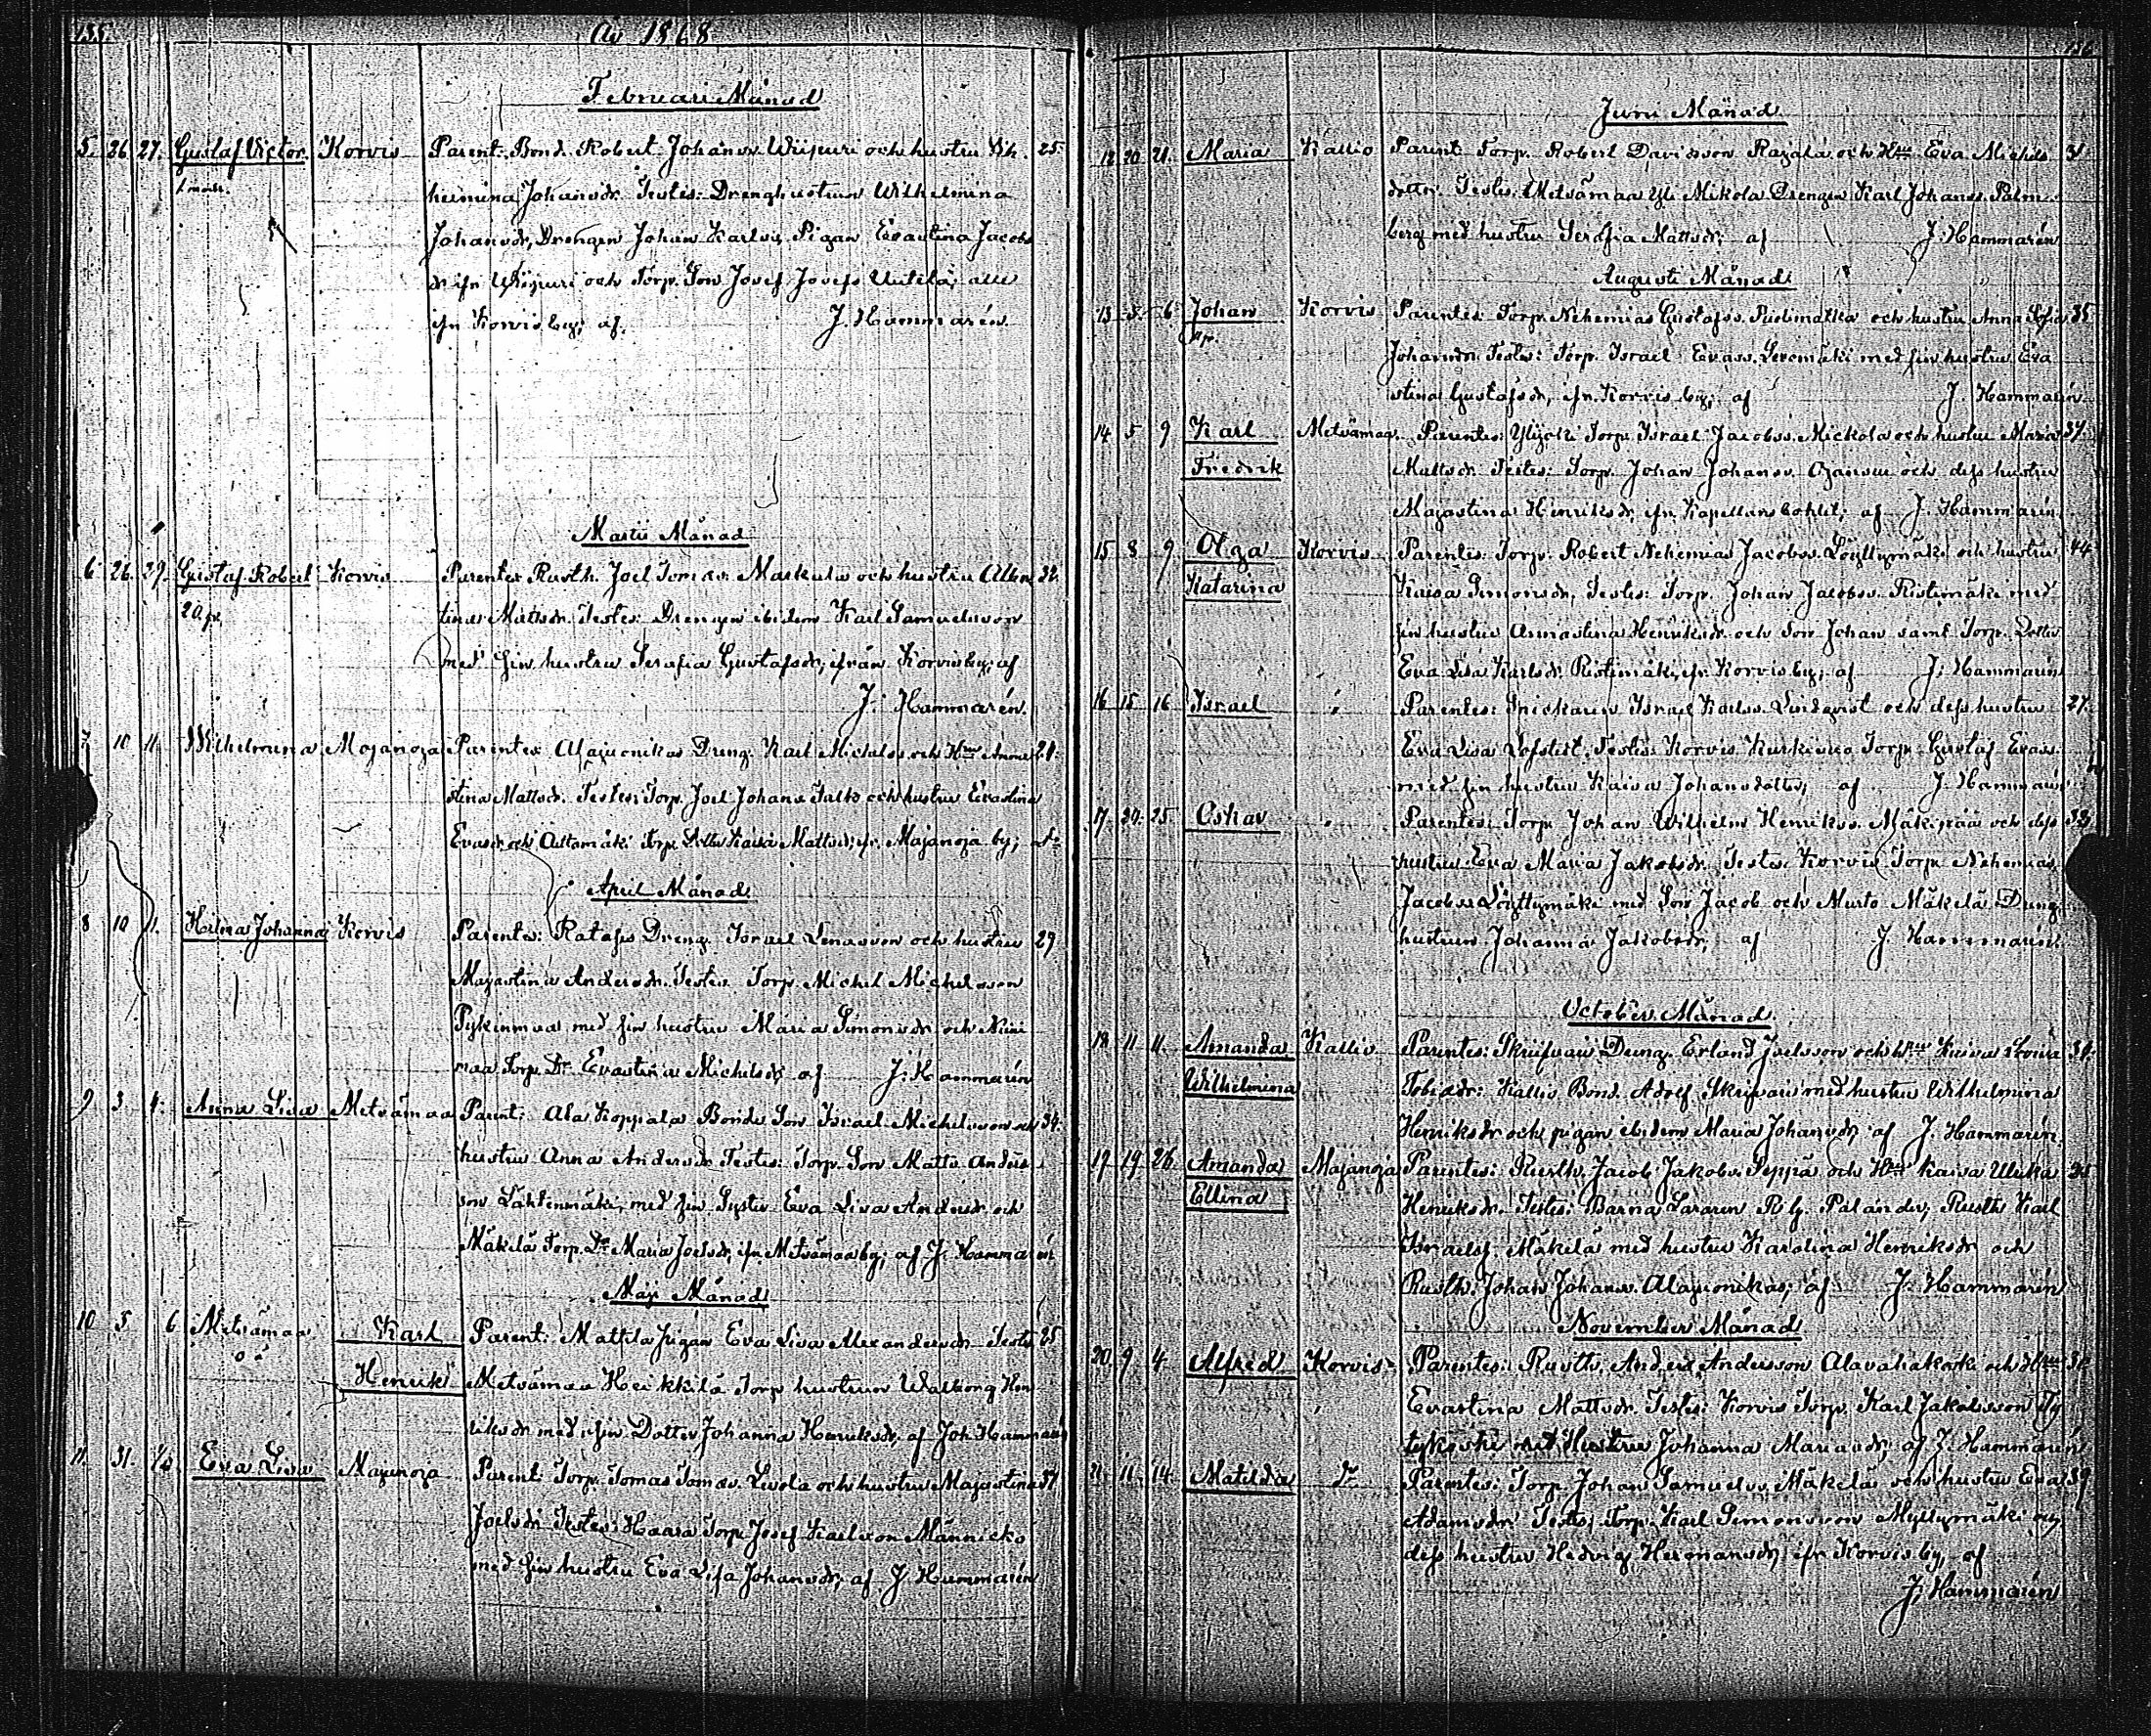 155.
År 1868
Februari Månad
5. 26. 27. Gustaf Victor. Korvis Parent: Bond. Robert Johanss. Wiipuri och hustru Wil- 25
helmina Johansdr. Testes: Drenghustrun Wilhelmina
Johansdr, Drengen Johan Karlss, Pigan Evastina Jacobs
dr ifrn Wiipuri och Torp. Son Josef Josefs Uutela, alle
ifrn Korvis by; af. J. Hammarén
Martii Månad
6. 26. 29. Gustaf Robert Korvis Parentes Rusth. Joel Tomass. Maskula och hustru Alben 32.
tina Mattsdr. Testes: Drengen ibidem Karl Samuelsson
med sin hustru Serafia Gustafsdr, ifrån Korvis by; af
J. Hammarén
7. 10 11. Wilhelmina Majanoja Parentes Alajuonikas Dreng. Karl Michelss. och Hun Anna 24.
stina Mattsdr. Testes: Torp. Joel Johans Salo och hustru Evastina
Evasdr och Auttomäki Torp. Dotter Kaisa Mattsdr, ifr. Majanoja by; Dr
April Månad
8 10 11. Hilma Johanna Korvis Parentes: Ratasis Dreng. Israel Lenasson och hustru 29
Majastina Andersdr. Testes Torp. Michel Michelsson
med sin hustru Maria Simonsdr och Niini
maa Torp. Dr Evastina Michelsdr af J. Hammarén
9 3. 4. Anna Lisa Metsämaa Parent: Ala Koppala Bonde Son Israel Michelsson och 34.
hustru Anna Andersdr Testes: Torp. Son Matts Anders
son Lähteenmäki, med sin Syster Eva Lisa Andersdr och
Mäkelä Torp. Dr Maria Joelsdr, ifrn Metsämaa by; af J. Hammarén
Maji Månad
10 5. 6 Metsämaa Karl Parent: Mattila pigan Eva Lisa Alexandersdr Testes 25
o ä Henrik Metsämaa Heikkilä Torp hustrun Walborg Hen
riksdr med sin Dotter Johanna Henriksdr, af Joh Hammarén
11. 31. 1/6 Eva Lisa Majanoja Parent Torp. Tomas Tomass. Levola och hustru Majastina 37
Joelsdr Testes: Haara Torp Josef Karlsson Männickö
med sin hustru Eva Lisa Johansdr, af J. Hammarén
156
Juni Månad
12 20 21. Maria Kallio Parent Torp. Robert Davidsson Rajala och Hun Eva Michels 31
dotter. Testes. Metsämaa Yli Mikola Drengen Karl Johanss. Palm-
berg med hustru Serafia Mattsdr, af J. Hammarén
Augusti Månad
13 5. 6 Johan Korvis Parentes Torp. Nehemias Gustafss. Puolimatka och hustru Anna Sofia 35
Johansdr. Testes: Torp. Israel Evass. Levomäki med sin hustru Eva
stina Gustafsdr, ifrn. Korvis by; af J. Hammarén
14 5 9 Karl Metsämaa. Parentes: Torp. Israel Jacobss. Mickola och hustru Maria 37.
Fredrik Mattsdr Testes: Torp. Johan Johanss. Ojansuu och dess hustru
Majastina Henriksdr, ifrn Kapellansbohlet; af J. Hammarén
15 8 9 Olga Korvis Parentes. Torp. Robert Nehemias Jacobss. Löyttymäki och hustru 44
Katarina Kaisa Simonsdr, Testes: Torp. Johan Jacobss. Ristimäki med
sin hustru Annastina Henriksdr och Son Johan samt Torp. Dotter
Eva Lisa Karlsdr Ristimäki, ifr. Korvis by; af J. Hammarén
16 15 16 Israel " Parentes: Snickaren Israel Karlss. Lindqvist och dess hustru 27.
Eva Lisa Löfstet. Testes: Korvis Kurkisuo Torp. Gustaf Evass.
med sin hustru Kaisa Johansdotter, af J. Hammarén
17. 24. 25. Oskar " Parentes: Torp. Johan Wilhelm Henrikss. Mäkipää och dess 32
hustru Eva Maria Jakobsdr. Testes Korvis Torp. Nehemias
Jacobss Löyttymäki med Son Jacob och Murto Mäkelä Dreng
hustrun Johanna Jakobsdr, af J. Hammarén
October Månad
18 11 11. Amanda Kallio Parentes: Skrifvari Dreng. Erland Joelsson och Hun Kaisa Lovisa 31.
Wilhelmina Tobiasdr: Kallio Bond. Adolf Skrifvari med hustru Wilhelmina
Henriksdr och pigan ibidem Maria Johansdr, af J. Hammarén
19 19. 26. Amanda Majanoja Parentes: Rusth. Jacob Jakobs. Seppä och Hun Kaisa Ulrika 31
Ellina Henriksdr. Testes: Barna Läraren R. G. Palander, Rusth. Karl
Israelss. Mäkelä med hustru Karolina Henriksdr och
Rusth. Johan Johanss. Alajuonikas; af J. Hammarén
November Månad
20. 9. 4. Alfred Korvis Parentes: Rusth. Anders Andersson Alavahakoski och Hun 31
Evastina Mattsdr. Testes: Korvis Torp. Karl Jakobsson
med Hustru Johanna Mariasdr, af J. Hammarén
21. 11. 14. Matilda Do Parentes: Torp. Johan Samuelss. Mäkelä och hustru Eva 39
Adamsdr Testes, Torp. Karl Simonsson Myllymäki och
dess hustru Hedvig Hermansdr, ifrn Korvis by, af
J. Hammarén